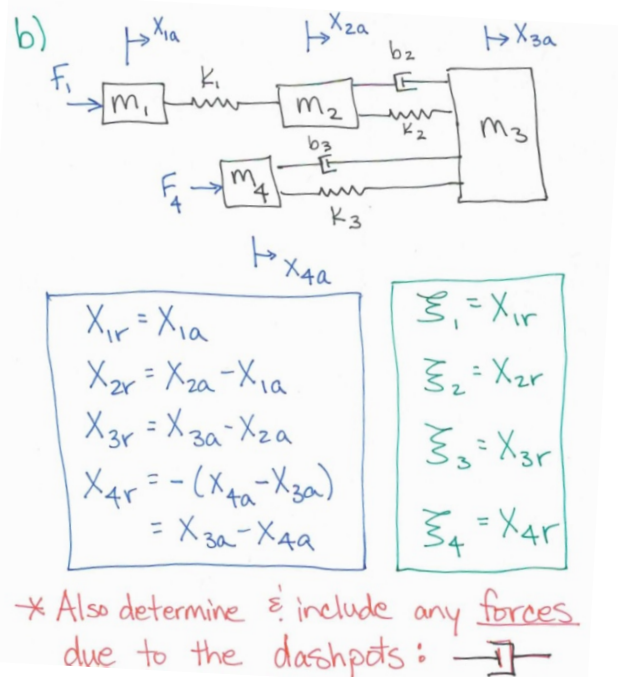 b)
X1a
X2a
X3a
b2
F1
m1
K1
m2
K2
m3
b3
F4
m4
K3
X4a
X1r = X1a
X2r = X2a - X1a
X3r = X3a - X2a
X4r = -(X4a - X3a)
= X3a - X4a
ξ1 = X1r
ξ2 = X2r
ξ3 = X3r
ξ4 = X4r
* Also determine & include any forces
due to the dashpots: